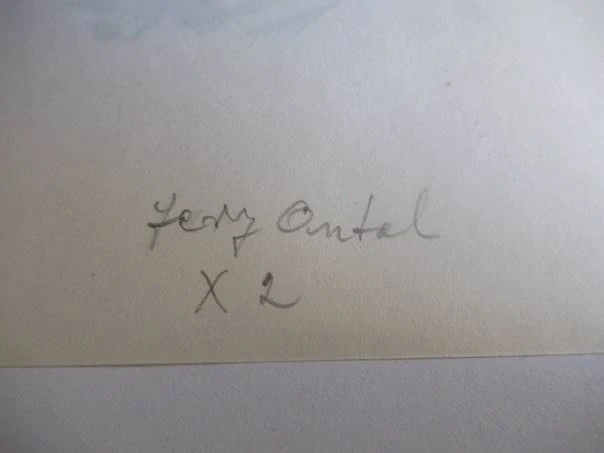 Fery Antal
X 2